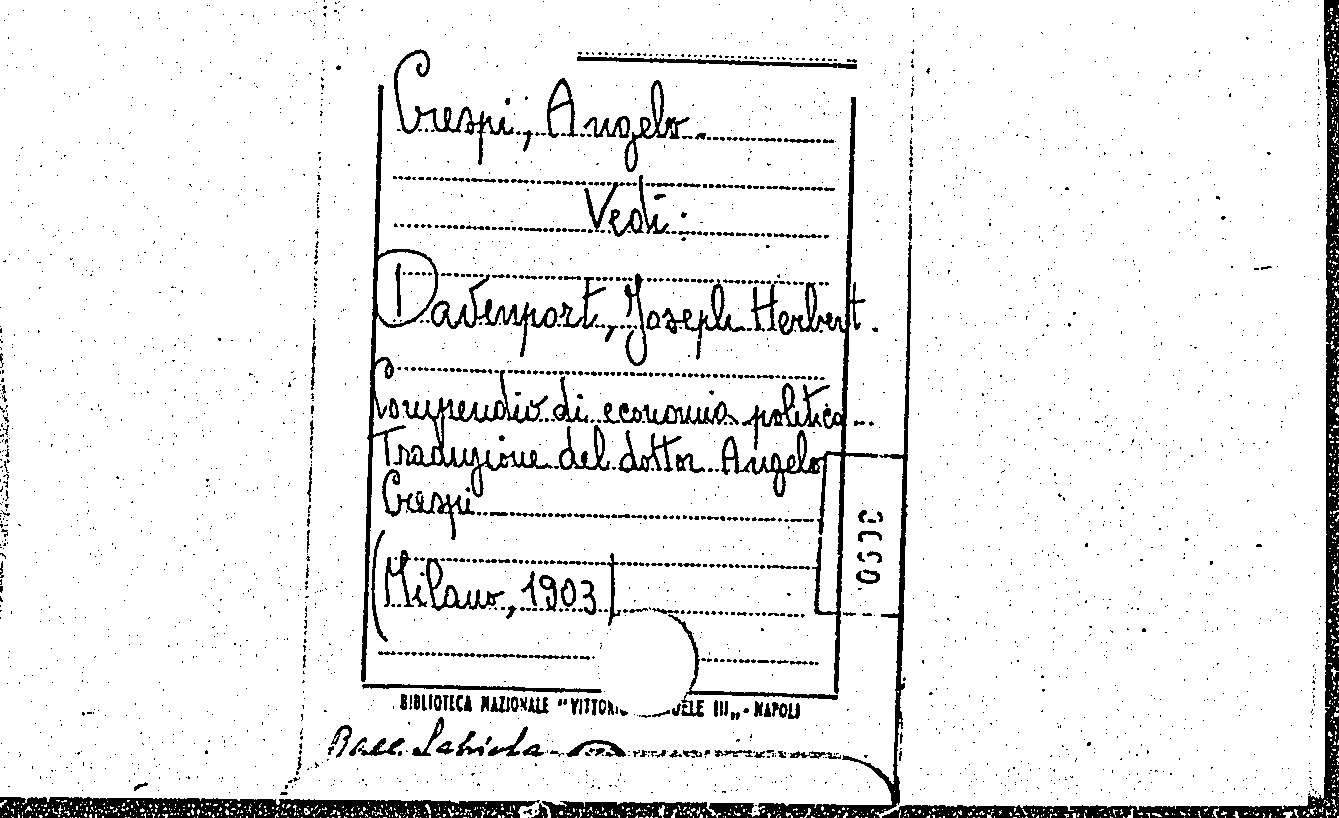 Crespi, Angelo.
Vedi:
Davenport, Joseph Herbert.
Compendio di economia politica...
Traduzione del dottor Angelo
Crespi
(Milano, 1903)
BIBLIOTECA NAZIONALE "VITTORIO ELE III„ - NAPOLI
Racc. Labriola